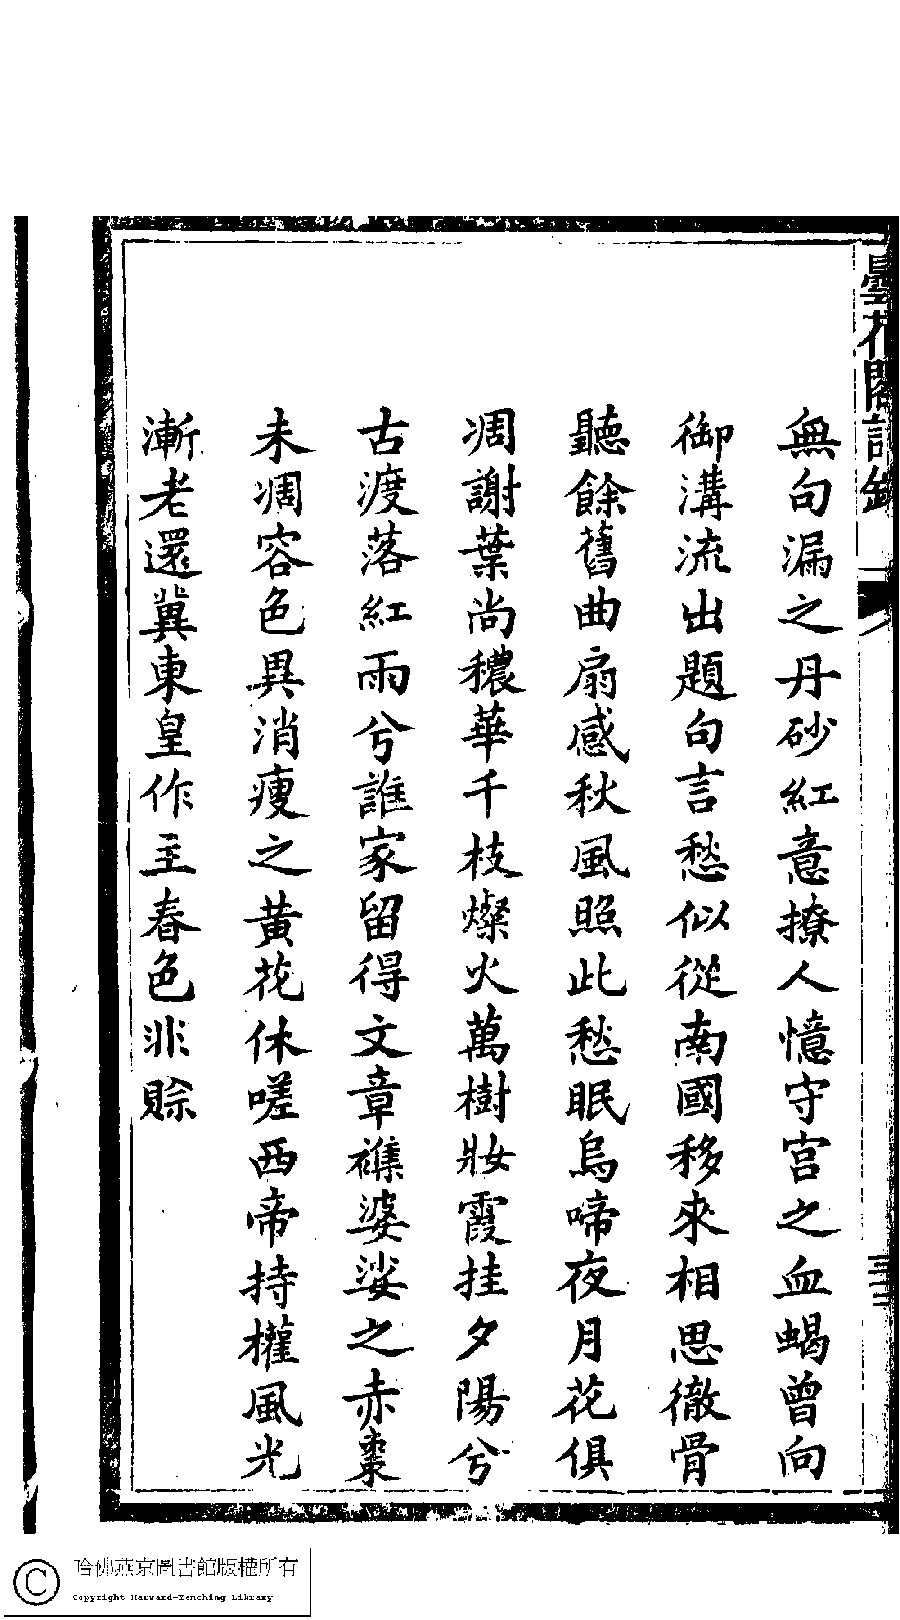 曇花閣詩鈔
無句漏之丹砂紅意撩人憶守宮之血蝎曾向
御溝流出題句言愁似從南國移來相思徹骨
聽餘舊曲扇感秋風照此愁眠烏啼夜月花俱
凋謝葉尚穠華千枝燦火萬樹妝霞挂夕陽兮
古渡落紅雨兮誰家留得文章襍婆娑之赤棗
未凋容色異消瘦之黃花休嗟西帝持權風光
漸老還冀東皇作主春色非賒
哈佛燕京圖書館版權所有
Copyright Harvard-Yenching Library